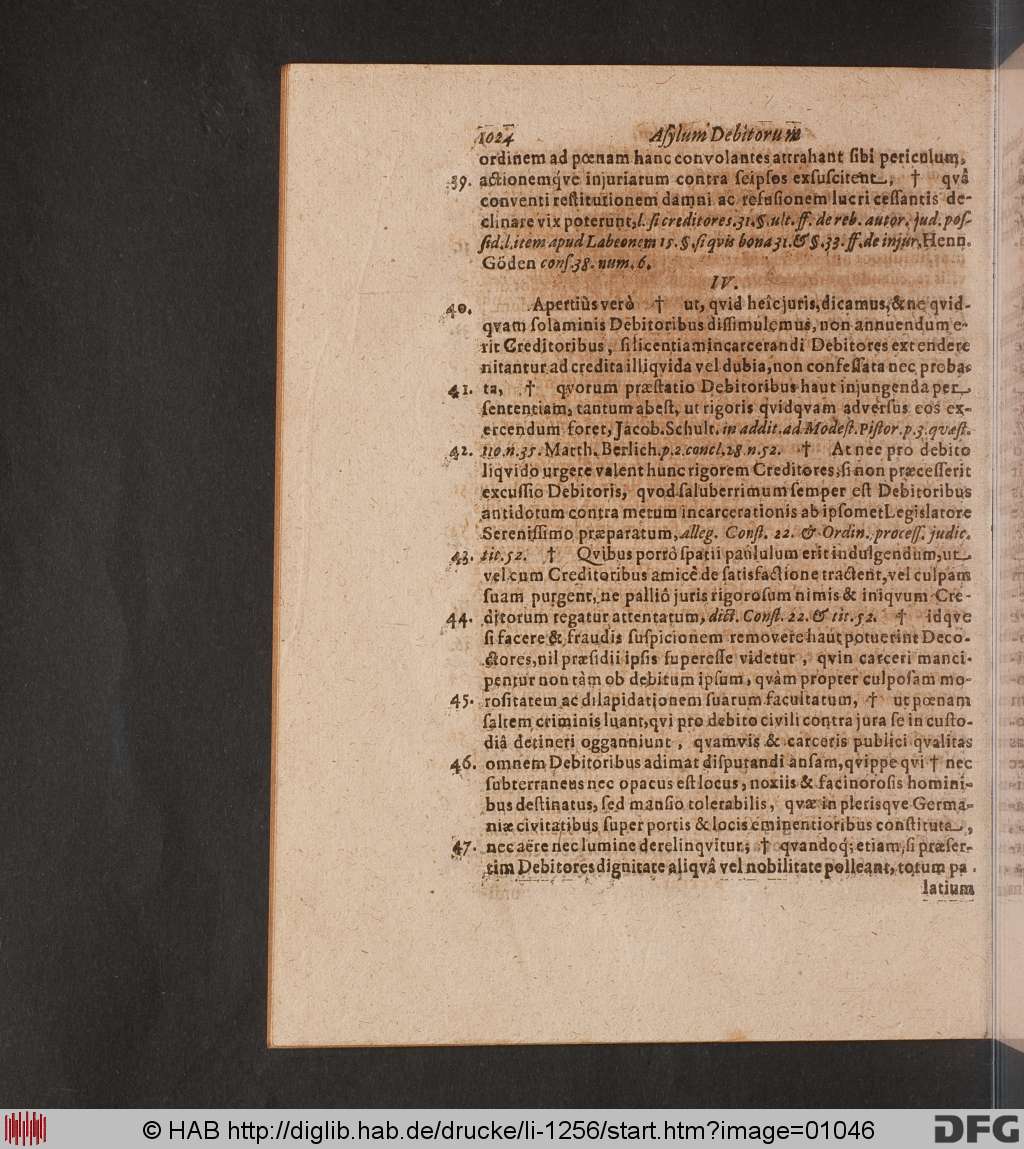 1024 Asylum Debitorum
ordinem ad pœnam hanc convolantes attrahant sibi periculum,
39. actionemq́ve injuriarum contra seipsos exsuscitent, † qvâ
conventi restitutionem damni ac refusionem lucri cessantis de-
clinare vix poterunt, l. si creditores. 31. §. ult. ff. de reb. autor. jud. pos-
sid. l. item apud Labeonem 15. §. si qvis bona 31. & §. 33. ff. de injur. Henn.
Göden cons. 38. num. 6.
IV.
40. Apertiùs verò † ut, qvid heîc juris, dicamus, & ne qvid-
qvam solaminis Debitoribus dissimulemus, non annuendum e-
rit Creditoribus, si licentiam incarcerandi Debitores extendere
nitantur ad credita illiqvida vel dubia, non confessata nec proba-
41. ta, † qvorum præstatio Debitoribus haut injungenda per
sententiam, tantum abest, ut rigoris qvidqvam adversus eos ex-
ercendum foret, Jacob. Schult. in addit. ad Modest. Pistor. p. 3. qvæst.
42. 110. n. 35. Matth. Berlich. p. 2. concl. 28. n. 52. † At nec pro debito
liqvido urgere valent hunc rigorem Creditores, si non præcesserit
excussio Debitoris, qvod saluberrimum semper est Debitoribus
antidotum contra metum incarcerationis ab ipsomet Legislatore
Serenissimo præparatum, alleg. Const. 22. & Ordin. process. judic.
43. tit. 52. † Qvibus porrò spatii paululum erit indulgendum, ut
vel cum Creditoribus amicè de satisfactione tractent, vel culpam
suam purgent, ne palliô juris rigorosum nimis & iniqvum Cre-
44. ditorum regatur attentatum, dict. Const. 22. & tit. 52. † idqve
si facere & fraudis suspicionem removere haut potuerint Deco-
ctores, nil præsidii ipsis superesse videtur, qvin carceri manci-
pentur non tàm ob debitum ipsum, qvàm propter culposam mo-
45. rositatem ac dilapidationem suarum facultatum, † ut pœnam
saltem criminis luant, qvi pro debito civili contra jura se in custo-
diâ detineri ogganniunt, qvamvis & carceris publici qvalitas
46. omnem Debitoribus adimat disputandi ansam, qvippe qvi † nec
subterraneus nec opacus est locus, noxiis & facinorosis homini-
bus destinatus, sed mansio tolerabilis, qvæ in plerisqve Germa-
niæ civitatibus super portis & locis eminentioribus constituta,
47. nec aëre nec lumine derelinqvitur; † qvandoq́; etiam, si præser-
tim Debitores dignitate aliqvâ vel nobilitate polleant, totum pa-
latium
© HAB http://diglib.hab.de/drucke/li-1256/start.htm?image=01046
DFG